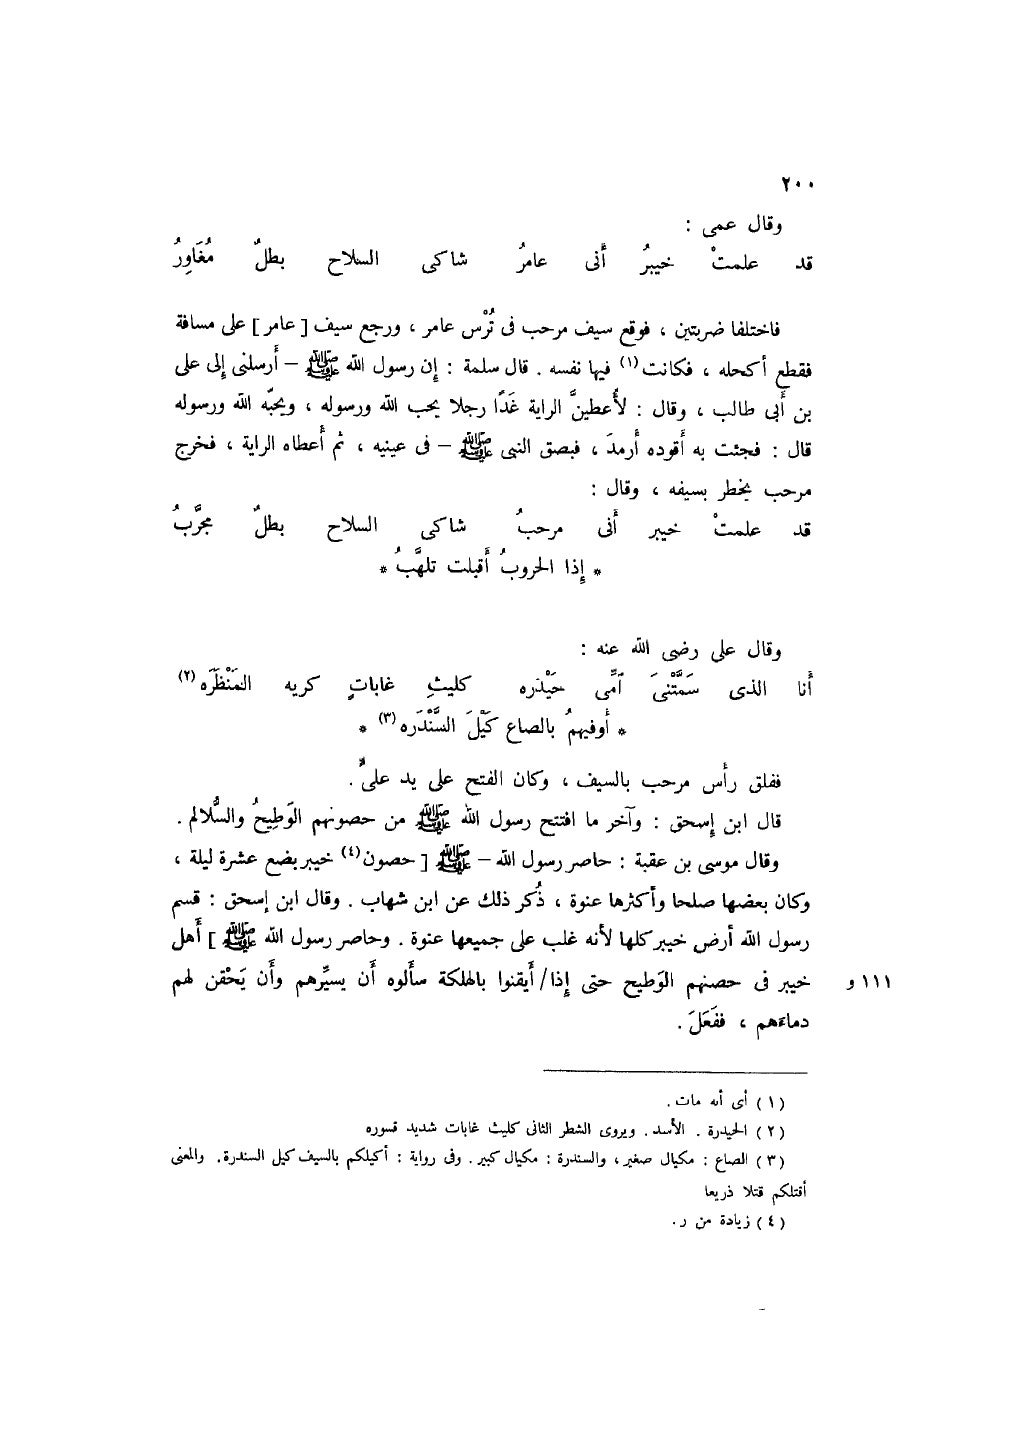 ٢٠٠
وقال عمى :
قد علمتْ خيبرُ أَنى عامرُ شاكى السلاح بطلٌ مُغَاوِرُ
فاختلفا ضربتين ، فوقع سيف مرحب فى تُرْس عامر ، ورجع سيف [ عامر ] على مسافة
فقطع أكحله ، فكانت (١) فيها نفسه . قال سلمة : إن رسول الله ﷺ – أَرسلنى إلى على
بن أَبى طالب ، وقال : لأُعطينَّ الراية غَدًا رجلا يحب الله ورسوله ، ويحبّه الله ورسوله
قال : فجئت به أَقوده أَرمدَ ، فبصق النبى ﷺ – فى عينيه ، ثم أَعطاه الراية ، فخرج
مرحب يخطر بسيفه ، وقال :
قد علمتْ خيبر أَنى مرحبُ شاكى السلاح بطلٌ مجرَّبُ
* إذا الحروبُ أَقبلت تلهَّبُ *
وقال على رضى الله عنه :
أَنا الذى سَمَّتْنىَ أمِّى حَيْدَره كليثِ غاباتٍ كريه المَنْظَرَه (٢)
* أوفيهمُ بالصاع كَيْلَ السَّنْدَره (٣) *
ففلق رأس مرحب بالسيف ، وكان الفتح على يد علىٍّ .
قال ابن إسحق : وآخر ما افتتح رسول الله ﷺ من حصونهم الوَطِيحُ والسُّلالم .
وقال موسى بن عقبة : حاصر رسول الله – ﷺ [ حصون (٤) خيبر بضع عشرة ليلة ،
وكان بعضها صلحا وأكثرها عنوة ، ذُكر ذلك عن ابن شهاب . وقال ابن إسحق : قسم
رسول الله أرض خيبر كلها لأنه غلب على جميعها عنوة . وحاصر رسول الله ﷺ ] أَهل
خيبر فى حصنهم الوَطيح حتى إذا / أَيقنوا بالهلكة سأَلوه أَن يسيِّرهم وأَن يَحْقن لهم ١١١ و
دماءَهم ، ففَعَلَ .
(١) أى أنه مات .
(٢) الحيدرة . الأسد . ويروى الشطر الثانى كليث غابات شديد قسوره
(٣) الصاع : مكيال صغير ، والسندرة : مكيال كبير . وفى رواية : أكيلكم بالسيف كيل السندرة . والمعنى
أقتلكم قتلا ذريعا
(٤) زيادة من ر .